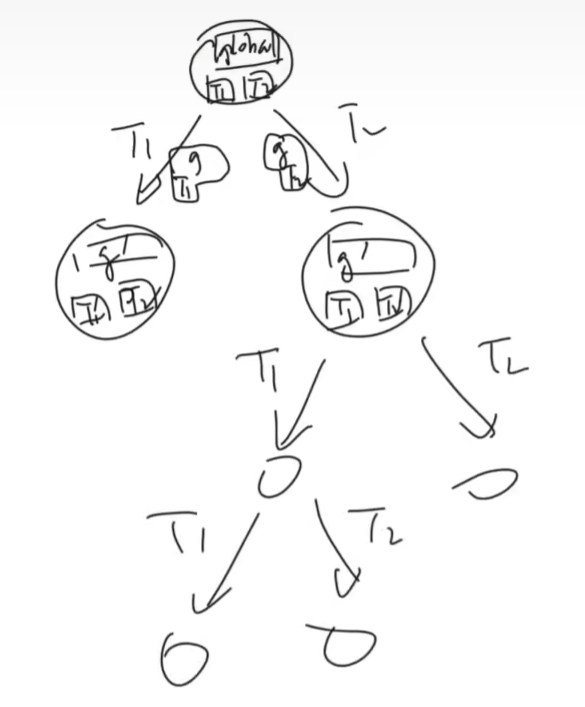 global
T1 T2
T1 g g T2
T1 T2
g' g'
T1' T2 T1 T2'
T1 T2
T1 T2